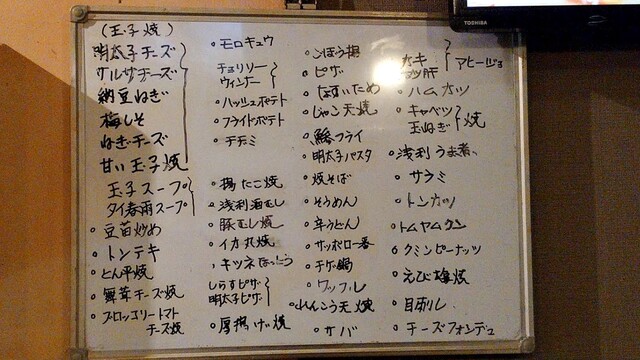 TOSHIBA
(玉子焼)
明太子チーズ
サルサチーズ
納豆ねぎ
梅しそ
ねぎチーズ
甘い玉子焼
玉子スープ
タイ春雨スープ
・豆苗炒め
・トンテキ
・とん平焼
・舞茸チーズ焼
・ブロッコリートマト
チーズ焼
・モロキュウ
チョリソー
ウィンナー
・ハッシュポテト
・フライドポテト
・チヂミ
・揚たこ焼
・浅利酒むし
・豚むし焼
・イカ丸焼
・キツネなっとう
しらすピザ
明太子ピザ
・厚揚げ焼
・ごぼう揚
・ピザ
・なすいため
・じゃこ天焼
・鯵フライ
・明太子パスタ
・焼そば
・そうめん
・辛うどん
・サッポロ一番
・チゲ鍋
・ワッフル
・れんこん天焼
・サバ
砂肝
アヒージョ
・ハムカツ
・キャベツ
玉ねぎ
焼
・浅利うま煮
・サラミ
・トンカツ
・トムヤムクン
・クミンピーナッツ
・えび塩焼
・目刺し
・チーズフォンデュ